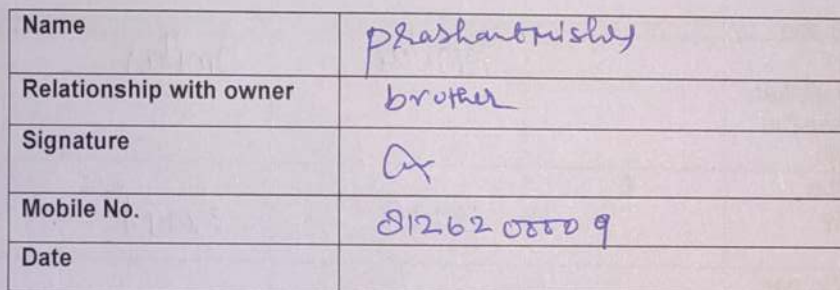 Name prashantmishra
Relationship with owner brother
Signature
Mobile No. 8126200009
Date